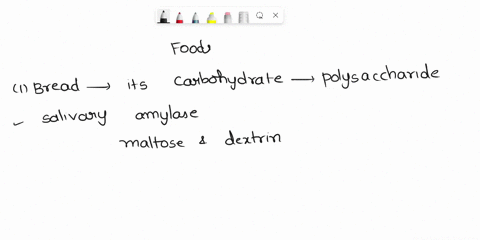 Foods
(1) Bread → its carbohydrate → polysaccharide
✓ salivary amylase
maltose & dextrin